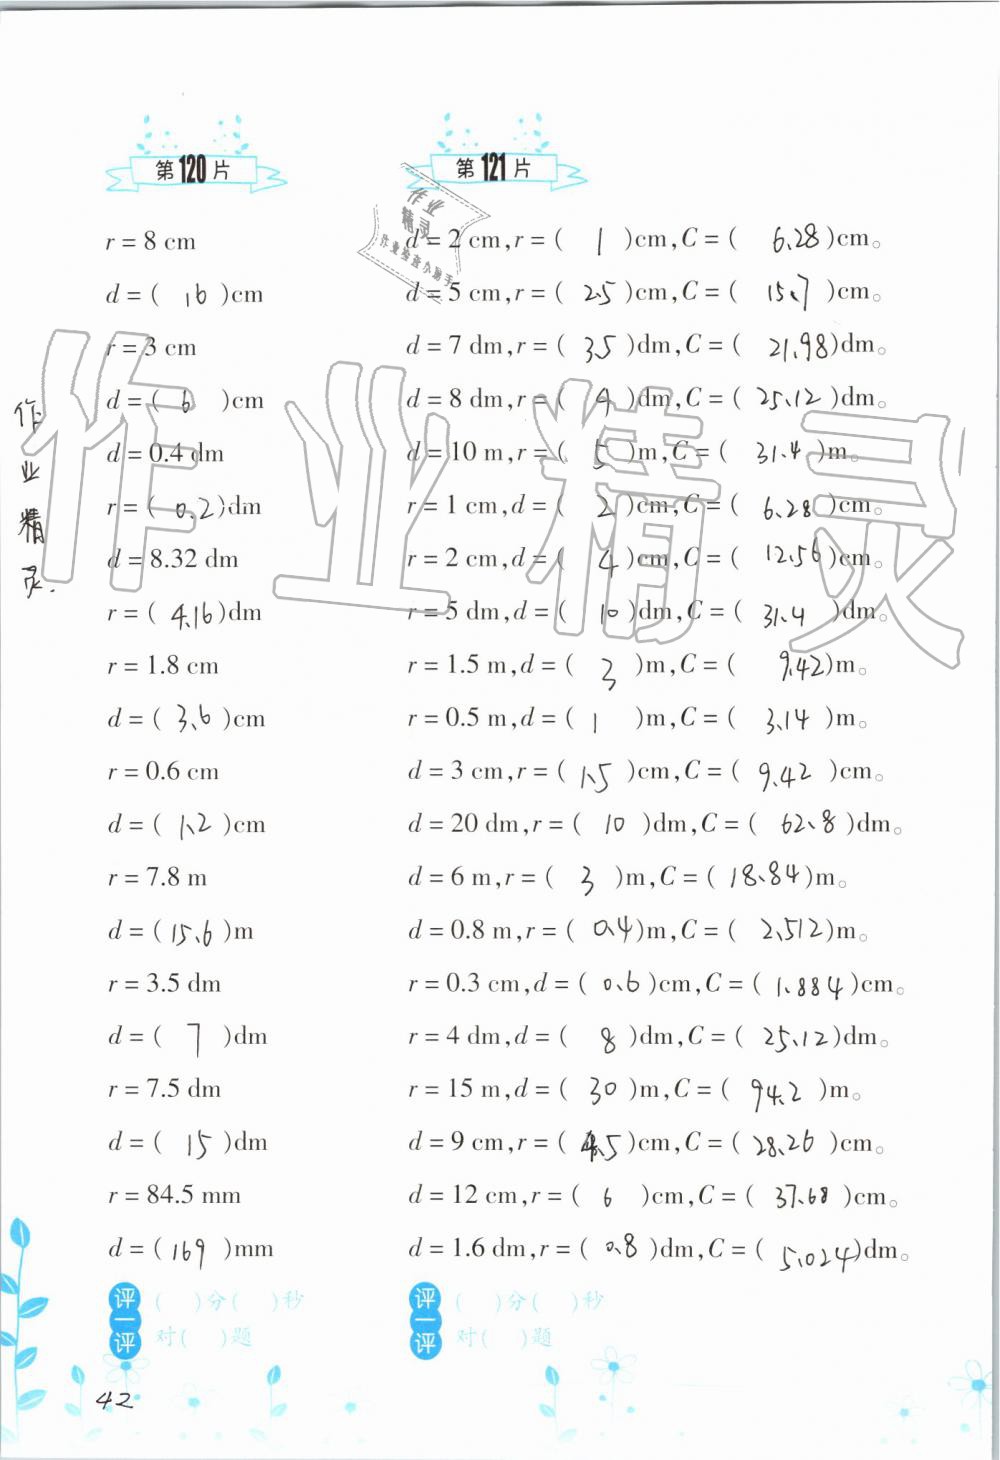 第120片
r = 8 cm
d = ( 16 )cm
r = 3 cm
d = ( 6 )cm
d = 0.4 dm
r = ( 0.2 )dm
d = 8.32 dm
r = ( 4.16 )dm
r = 1.8 cm
d = ( 3.6 )cm
r = 0.6 cm
d = ( 1.2 )cm
r = 7.8 m
d = ( 15.6 )m
r = 3.5 dm
d = ( 7 )dm
r = 7.5 dm
d = ( 15 )dm
r = 84.5 mm
d = ( 169 )mm
评一评
( )分( )秒
对( )题
第121片
d = 2 cm,r = ( 1 )cm,C = ( 6.28 )cm。
d = 5 cm,r = ( 2.5 )cm,C = ( 15.7 )cm。
d = 7 dm,r = ( 3.5 )dm,C = ( 21.98 )dm。
d = 8 dm,r = ( 4 )dm,C = ( 25.12 )dm。
d = 10 m,r = ( 5 )m,C = ( 31.4 )m。
r = 1 cm,d = ( 2 )cm,C = ( 6.28 )cm。
r = 2 cm,d = ( 4 )cm,C = ( 12.56 )cm。
r = 5 dm,d = ( 10 )dm,C = ( 31.4 )dm。
r = 1.5 m,d = ( 3 )m,C = ( 9.42 )m。
r = 0.5 m,d = ( 1 )m,C = ( 3.14 )m。
d = 3 cm,r = ( 1.5 )cm,C = ( 9.42 )cm。
d = 20 dm,r = ( 10 )dm,C = ( 62.8 )dm。
d = 6 m,r = ( 3 )m,C = ( 18.84 )m。
d = 0.8 m,r = ( 0.4 )m,C = ( 2.512 )m。
r = 0.3 cm,d = ( 0.6 )cm,C = ( 1.884 )cm。
r = 4 dm,d = ( 8 )dm,C = ( 25.12 )dm。
r = 15 m,d = ( 30 )m,C = ( 94.2 )m。
d = 9 cm,r = ( 4.5 )cm,C = ( 28.26 )cm。
d = 12 cm,r = ( 6 )cm,C = ( 37.68 )cm。
d = 1.6 dm,r = ( 0.8 )dm,C = ( 5.024 )dm。
评一评
( )分( )秒
对( )题
作业精灵
作业精灵
作业
精灵
作业检查小助手
42